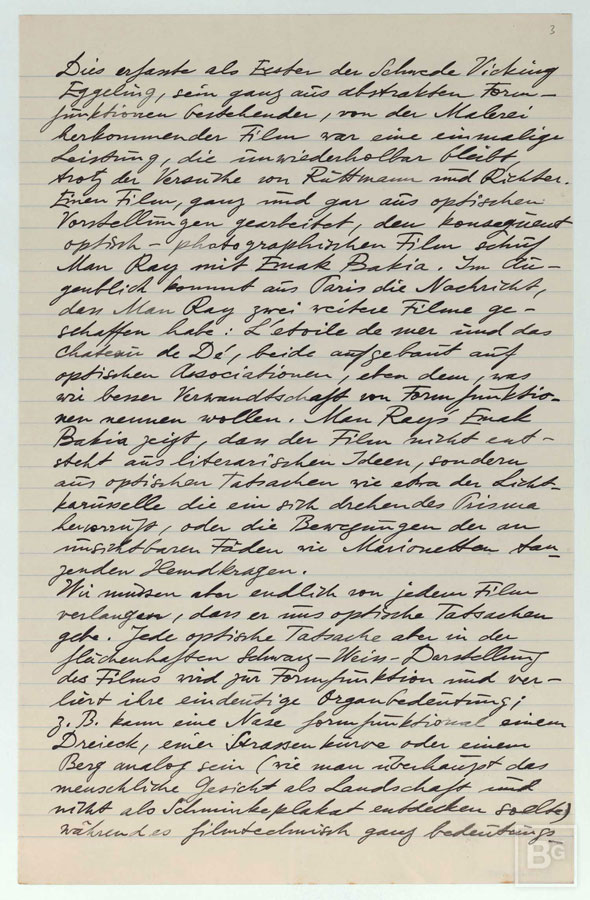 3
Dies erfasste als Erster der Schwede Vicking
Eggeling, sein ganz aus abstrakten Form-
funktionen bestehender, von der Malerei
herkommender Film war eine einmalige
Leistung, die unwiederholbar bleibt,
trotz der Versuche von Ruttmann und Richter.
Einen Film, ganz und gar aus optischen
Vorstellungen gearbeitet, den konsequent
optisch-photographischen Film schuf
Man Ray mit Emak Bakia. Im Au-
genblick kommt aus Paris die Nachricht,
dass Man Ray zwei weitere Filme ge-
schaffen habe: L'etoile de mer und das
Chateau de Dé, beide aufgebaut auf
optischen Associationen, eben dem, was
wir besser Verwandtschaft von Formfunktio-
nen nennen wollen. Man Ray's Emak
Bakia zeigt, dass der Film nicht ent-
steht aus literarischen Ideen, sondern
aus optischen Tatsachen wie etwa der Licht-
karusselle die ein sich drehendes Prisma
hervorruft, oder die Bewegungen der an
unsichtbaren Fäden wie Marionetten tan-
zenden Hemdkragen.
Wir müssen aber endlich von jedem Film
verlangen, dass er uns optische Tatsachen
gebe. Jede optische Tatsache aber in der
flächenhaften Schwarz-Weiss-Darstellung
des Films wird zur Formfunktion und ver-
liert ihre eindeutige Organbedeutung;
z.B. kann eine Nase formfunktional einem
Dreieck, einer Strassenkurve oder einem
Berg analog sein (wie man überhaupt das
menschliche Gesicht als Landschaft und
nicht als Schminkeplakat entdecken sollte)
während es filmtechnisch ganz bedeutungs-
BG